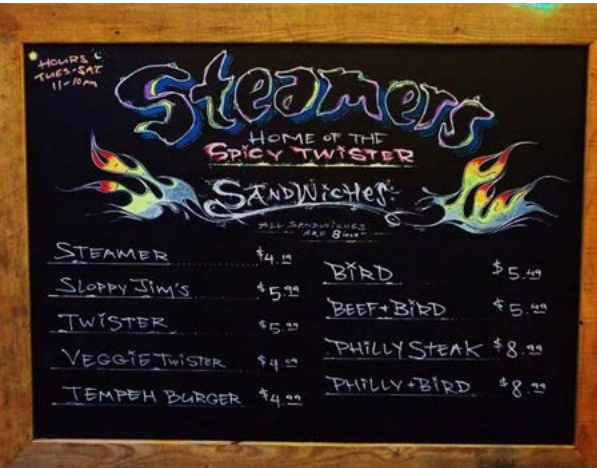 HOURS
TUES-SAT
11-10pm
Steamers
HOME OF THE
SPICY TWISTER
SANDWICHES
ALL SANDWICHES
ARE 8 inch
STEAMER
SLOPPY JIM'S $5.99
TWISTER $5.99
VEGGIE TWISTER
TEMPEH BURGER $4.99
BIRD $5.49
BEEF + BIRD $5.49
PHILLY STEAK $8.99
PHILLY + BIRD $8.99